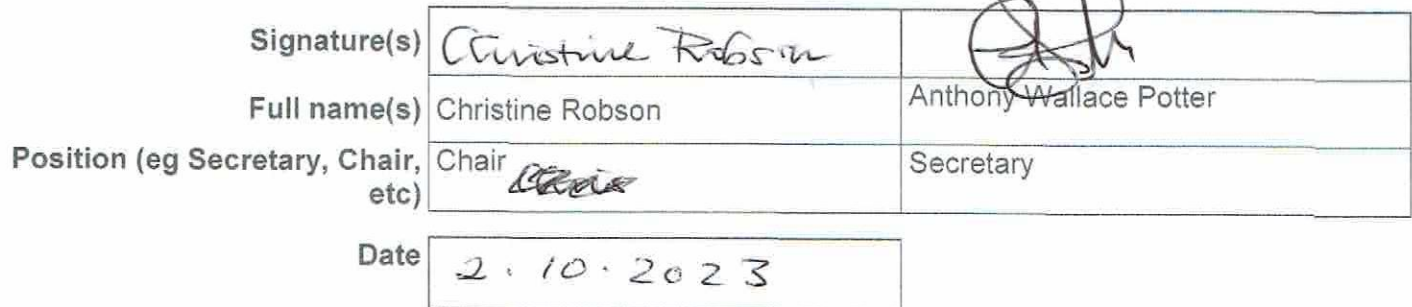 Signature(s) Christine Robson
Full name(s) Christine Robson Anthony Wallace Potter
Position (eg Secretary, Chair, etc) Chair Secretary
Date 2.10.2023